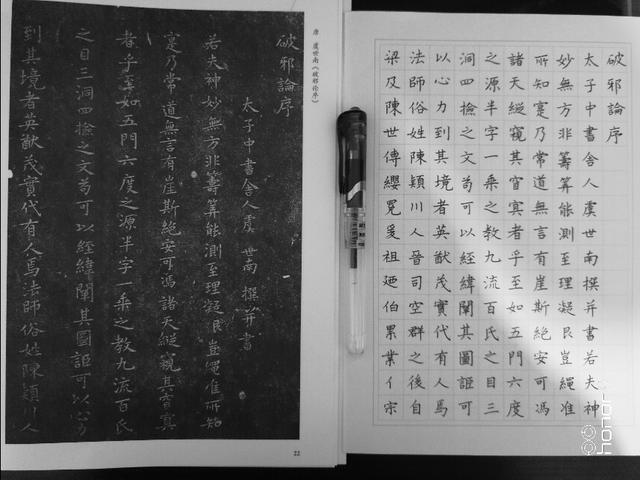 唐 虞世南《破邪论序》
破邪論序
太子中書舍人虞世南撰并書
若夫神妙無方非籌筭能測至理凝艮豈繩准所知
寔乃常道無言有崖斯絕安可馮諸天縱窺其窅冥
者乎至如五門六度之源半字一乘之教九流百氏
之目三洞四撿之文苟可以經緯闡其圖詎可以心力
到其境者英猷茂實代有人焉法師俗姓陳潁川人
22
破邪論序
太子中書舍人虞世南撰并書若夫神
妙無方非籌筭能測至理凝艮豈繩准
所知寔乃常道無言有崖斯絕安可馮
諸天縱窺其窅冥者乎至如五門六度
之源半字一乘之教九流百氏之目三
洞四撿之文苟可以經緯闡其圖詎可
以心力到其境者英猷茂實代有人焉
法師俗姓陳潁川人晉司空群之後自
梁及陳世傳纓冕爰祖迺伯累業亻宗
honor